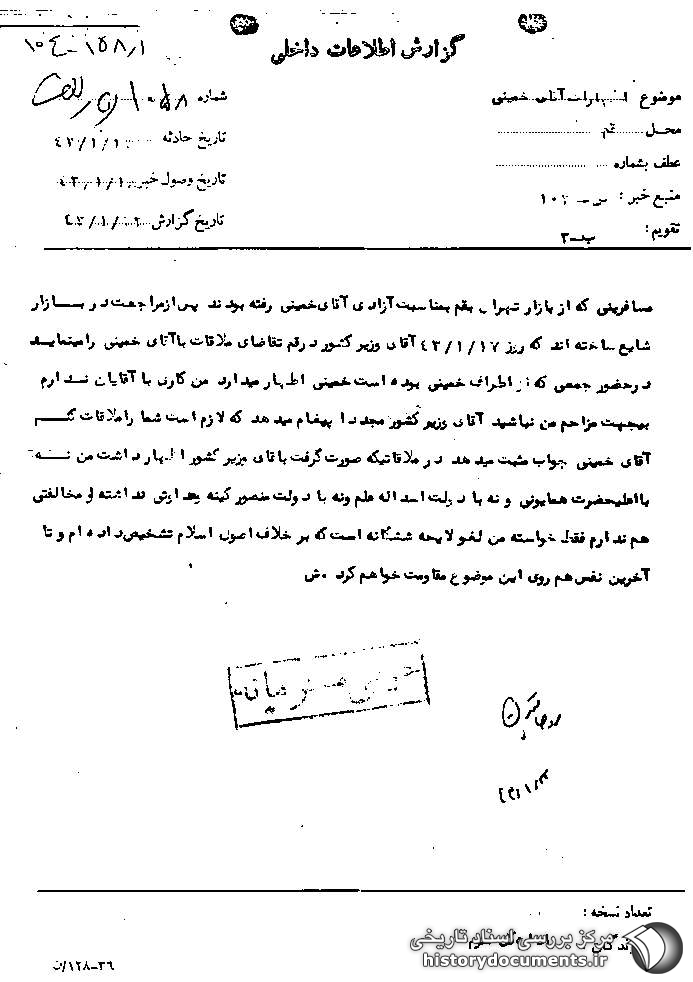 گزارش اطلاعات داخلی
موضوع اظهارات آقای خمینی
محل قم
عطف بشماره
منبع خبر :
تقویم : ب-۳
شماره ۱۰۵۸
تاریخ حادثه
تاریخ وصول خبر
تاریخ گزارش
مسافرینی که از بازار تهران بقم بمناسبت آزادی آقای خمینی رفته بودند پس از مراجعت در بازار
شایع ساخته اند که روز ۴۳/۱/۱۷ آقای وزیر کشور در قم تقاضای ملاقات با آقای خمینی را مینماید
در حضور جمعی که از اطراف خمینی بوده است خمینی اظهار میدارد من کاری با آقایان ندارم
بیجهت مزاحم من نباشید آقای وزیر کشور مجددا پیغام میدهد که لازم است شما را ملاقات کنم
آقای خمینی جواب مثبت میدهد در ملاقاتیکه صورت گرفت باقای وزیر کشور اظهار داشت من نه
با اعلیحضرت همایونی و نه با دولت اسداله علم ونه با دولت منصور کینه وعداوتی نداشته و مخالفتی
هم ندارم فقط خواسته من لغو لایحه ششگانه است که بر خلاف اصول اسلام تشخیص داده ام و تا
آخرین نفس هم روی این موضوع مقاومت خواهم کرد . ش
خیلی محرمانه
تعداد نسخه :
مرکز بررسی اسناد تاریخی
historydocuments.ir
۳۶-۱۲۸/ن